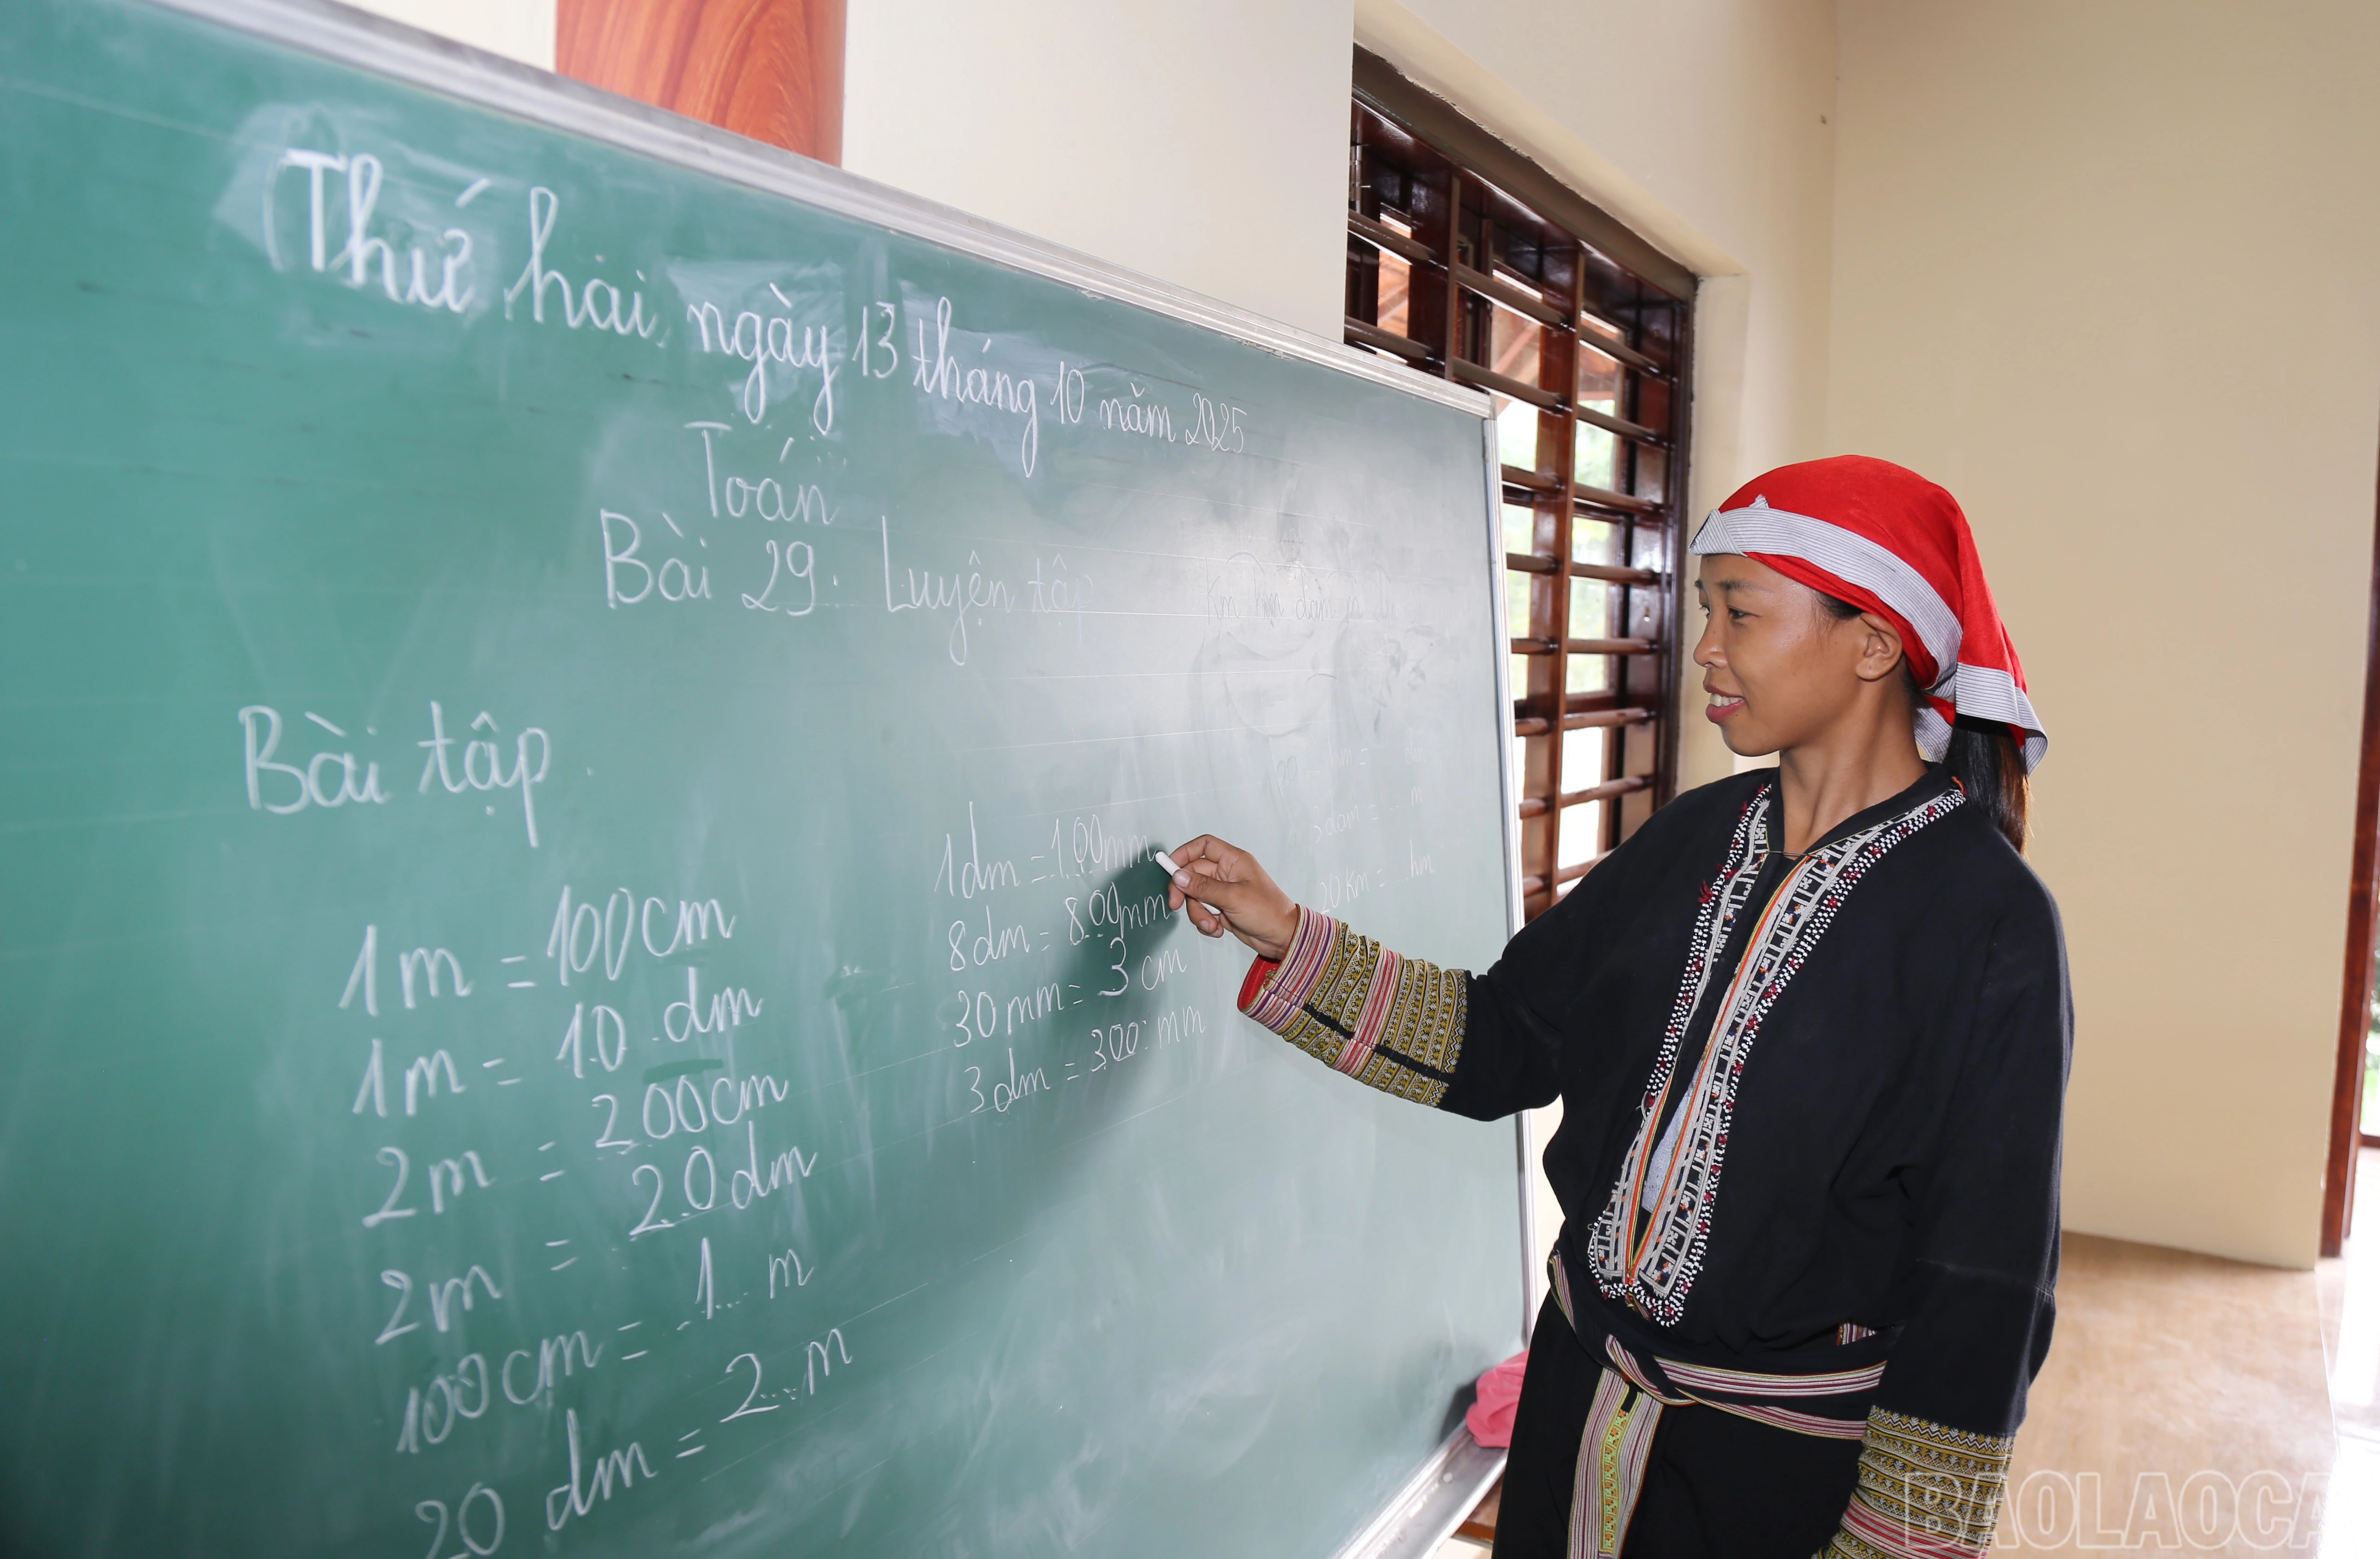 Thứ hai ngày 13 tháng 10 năm 2025
Toán
Bài 29. Luyện tập
Bài tập
1m = 100cm
1m = 10 dm
2m = 200cm
2m = 20dm
100cm = 1... m
20 dm = 2... m
1dm = 100mm
8dm = 800mm
30mm = 3 cm
3dm = 300 mm
3 dam = ... m
20 km = ... hm
BAOLAOCA